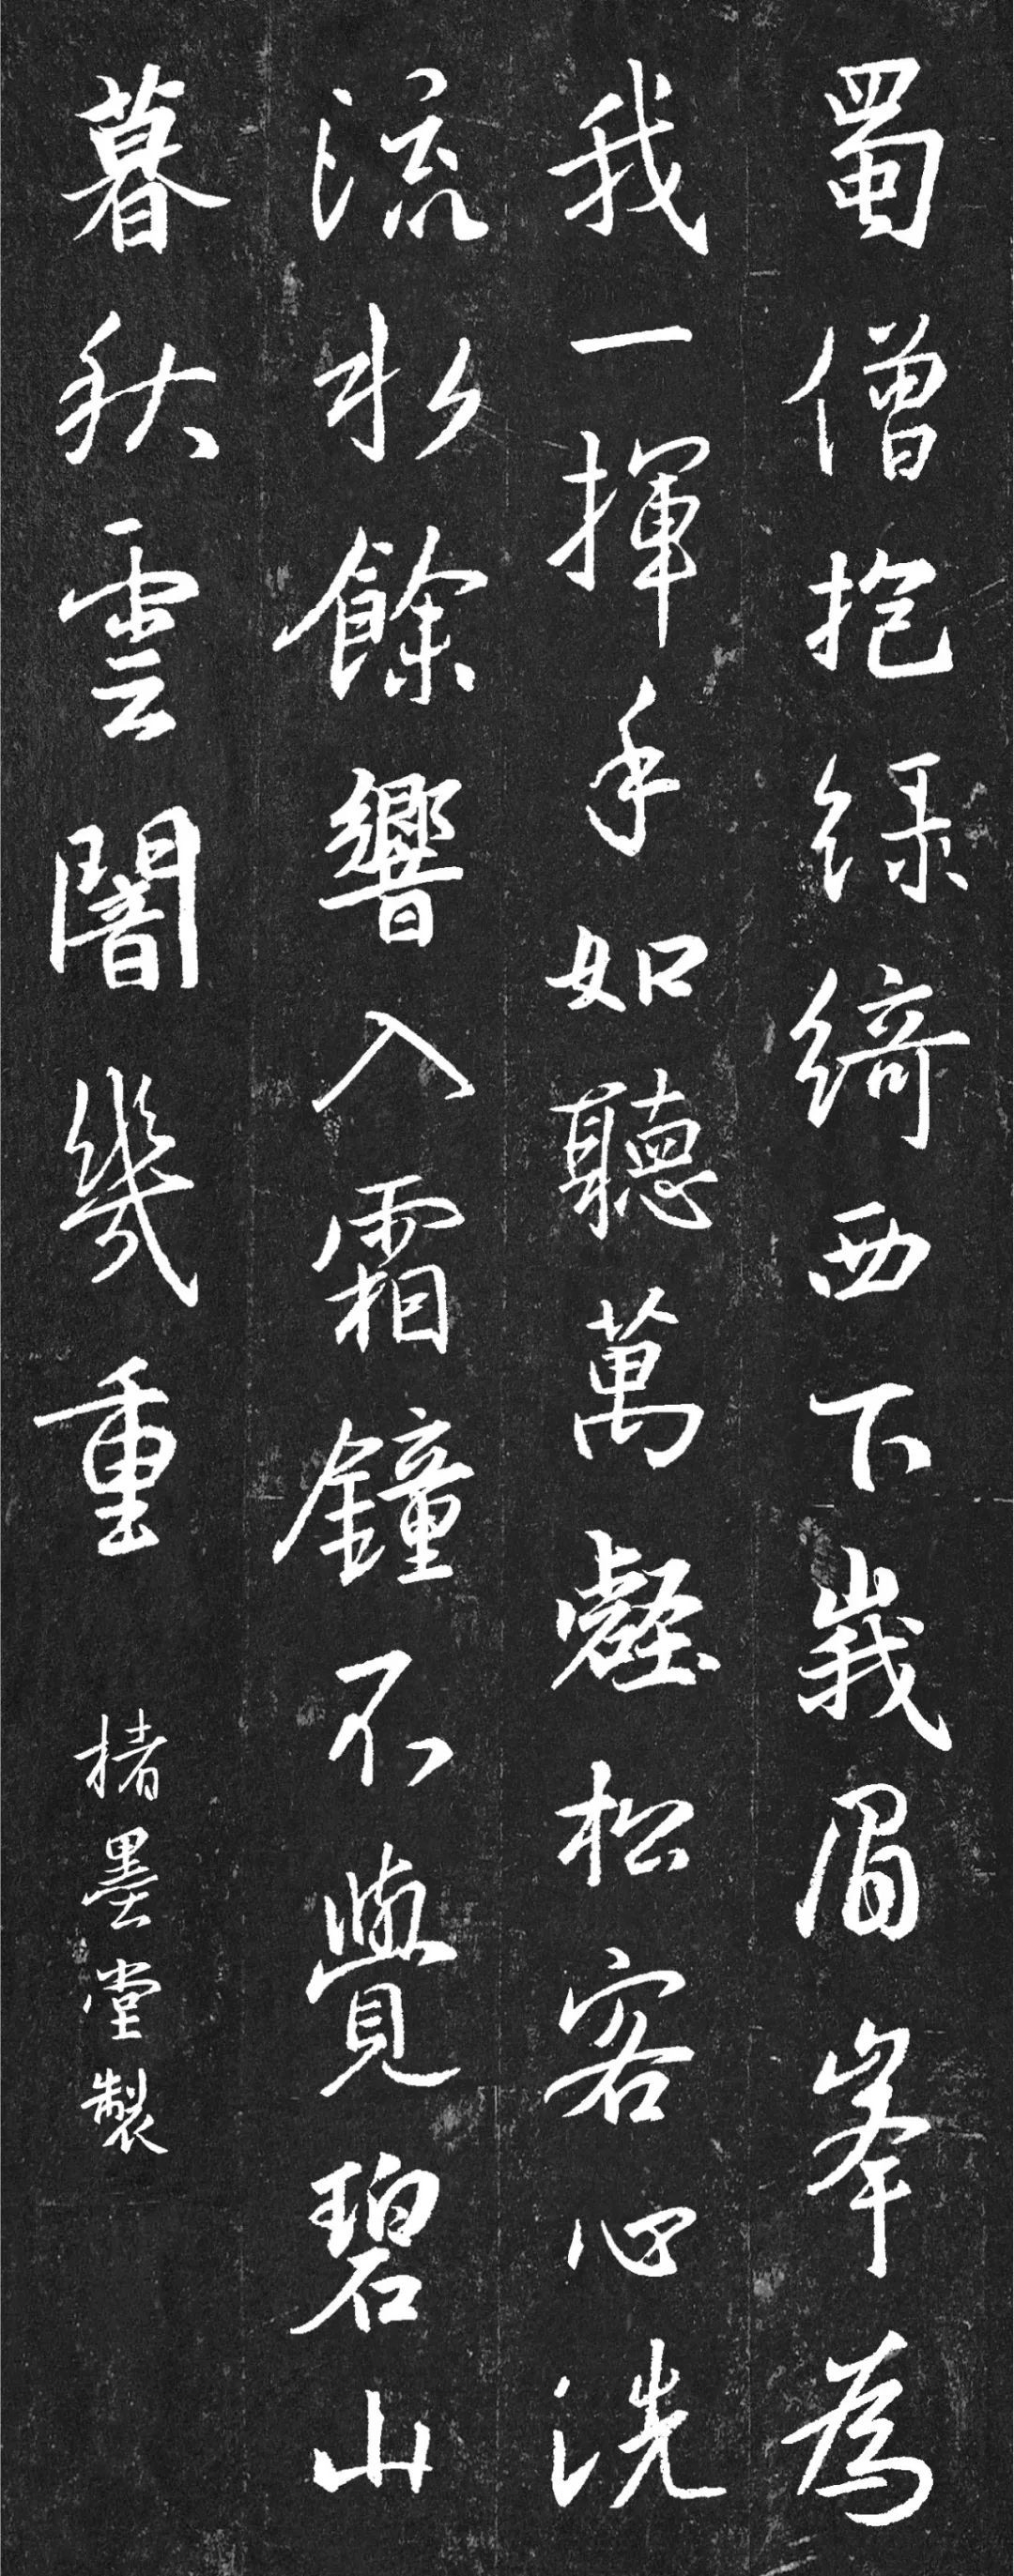 蜀僧抱緑綺西下峩眉峯為
我一揮手如聽萬壑松客心洗
流水餘響入霜鐘不覺碧山
暮秋雲闇幾重
楮墨堂製